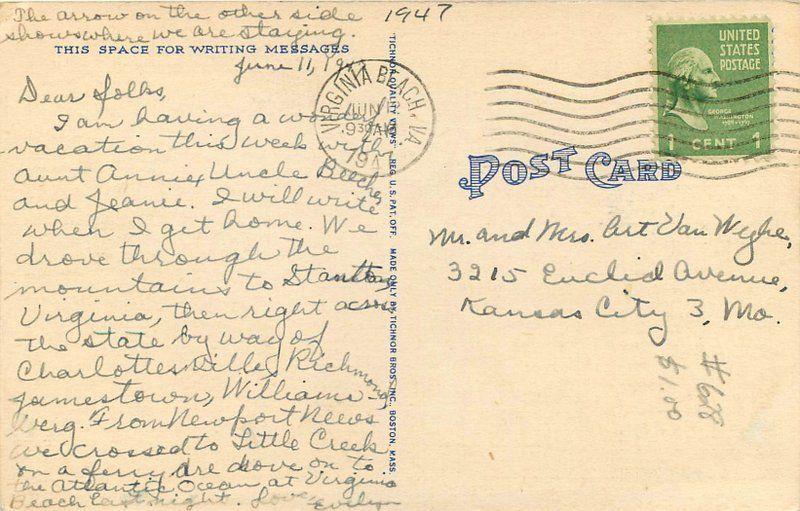 The arrow on the other side
shows where we are staying.
THIS SPACE FOR WRITING MESSAGES
June 11,
Dear folks,
I am having a
vacation this week with
aunt Annie, Uncle
and Jeanie. I will write
when I get home. We
drove through the
mountains to
Virginia, then right across
the state by way of
Charlottesville, Richmond,
Jamestown, Williams-
berg. From Newport News
we crossed to Little Creek
on a ferry drove on to
the Atlantic Ocean, at Virginia
Beach last night. Love, Evelyn
1947
TICHNOR QUALITY VIEWS REG. U.S. PAT. OFF. MADE ONLY BY TICHNOR BROS. INC., BOSTON, MASS.
VIRGINIA BEACH, VA
JUN
930AM
194
UNITED
STATES
POSTAGE
GEORGE
WASHINGTON
1 CENT 1
POST CARD
Mr. and Mrs. Art Van Weghe,
3215 Euclid Avenue,
Kansas City 3, Mo.